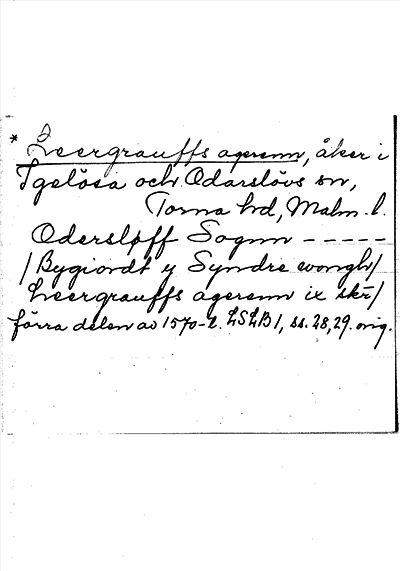 * Leergrauffs agerenn, åker i
Igelösa och Odarslövs sn,
Torna hd, Malm. l.
Odersløff Sognn -----
/Bygiordt y Syndre wongh/
Leergrauffs agerenn ix skr/
förra delen av 1570-t. LSLB1, ss. 28, 29. orig.